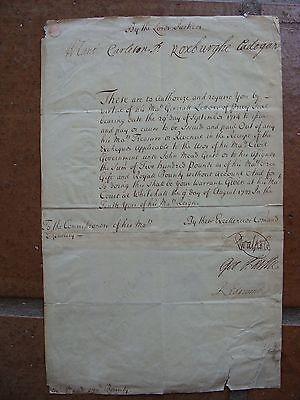 By the Lords Justices
W Cant Carleton P Roxburghe Cadogan
These are to Authorize and require You by
virtue of his Mats General Letters of Privy Seal
bearing date the 29 day of September 1714 to Issue
and pay or cause to be Issued and paid Out of any
his Mats Treasure or Revenue in the Receipt of his
Exchequer Applicable to the Uses of his Mats Civil
Government unto John or to his Assigns
the Sum of Hundred Pounds as of his Mats
Gift and Royal Bounty without Account And for
So doing this Shall be Your Warrant Given at the
Court at Whitehall the 9 day of August 1723 In the
Tenth Year of his Mats Reigne
To the Commissioners of his Mats
Treasury
By their Excellencies Comand
R Walpole
Geo
Bounty